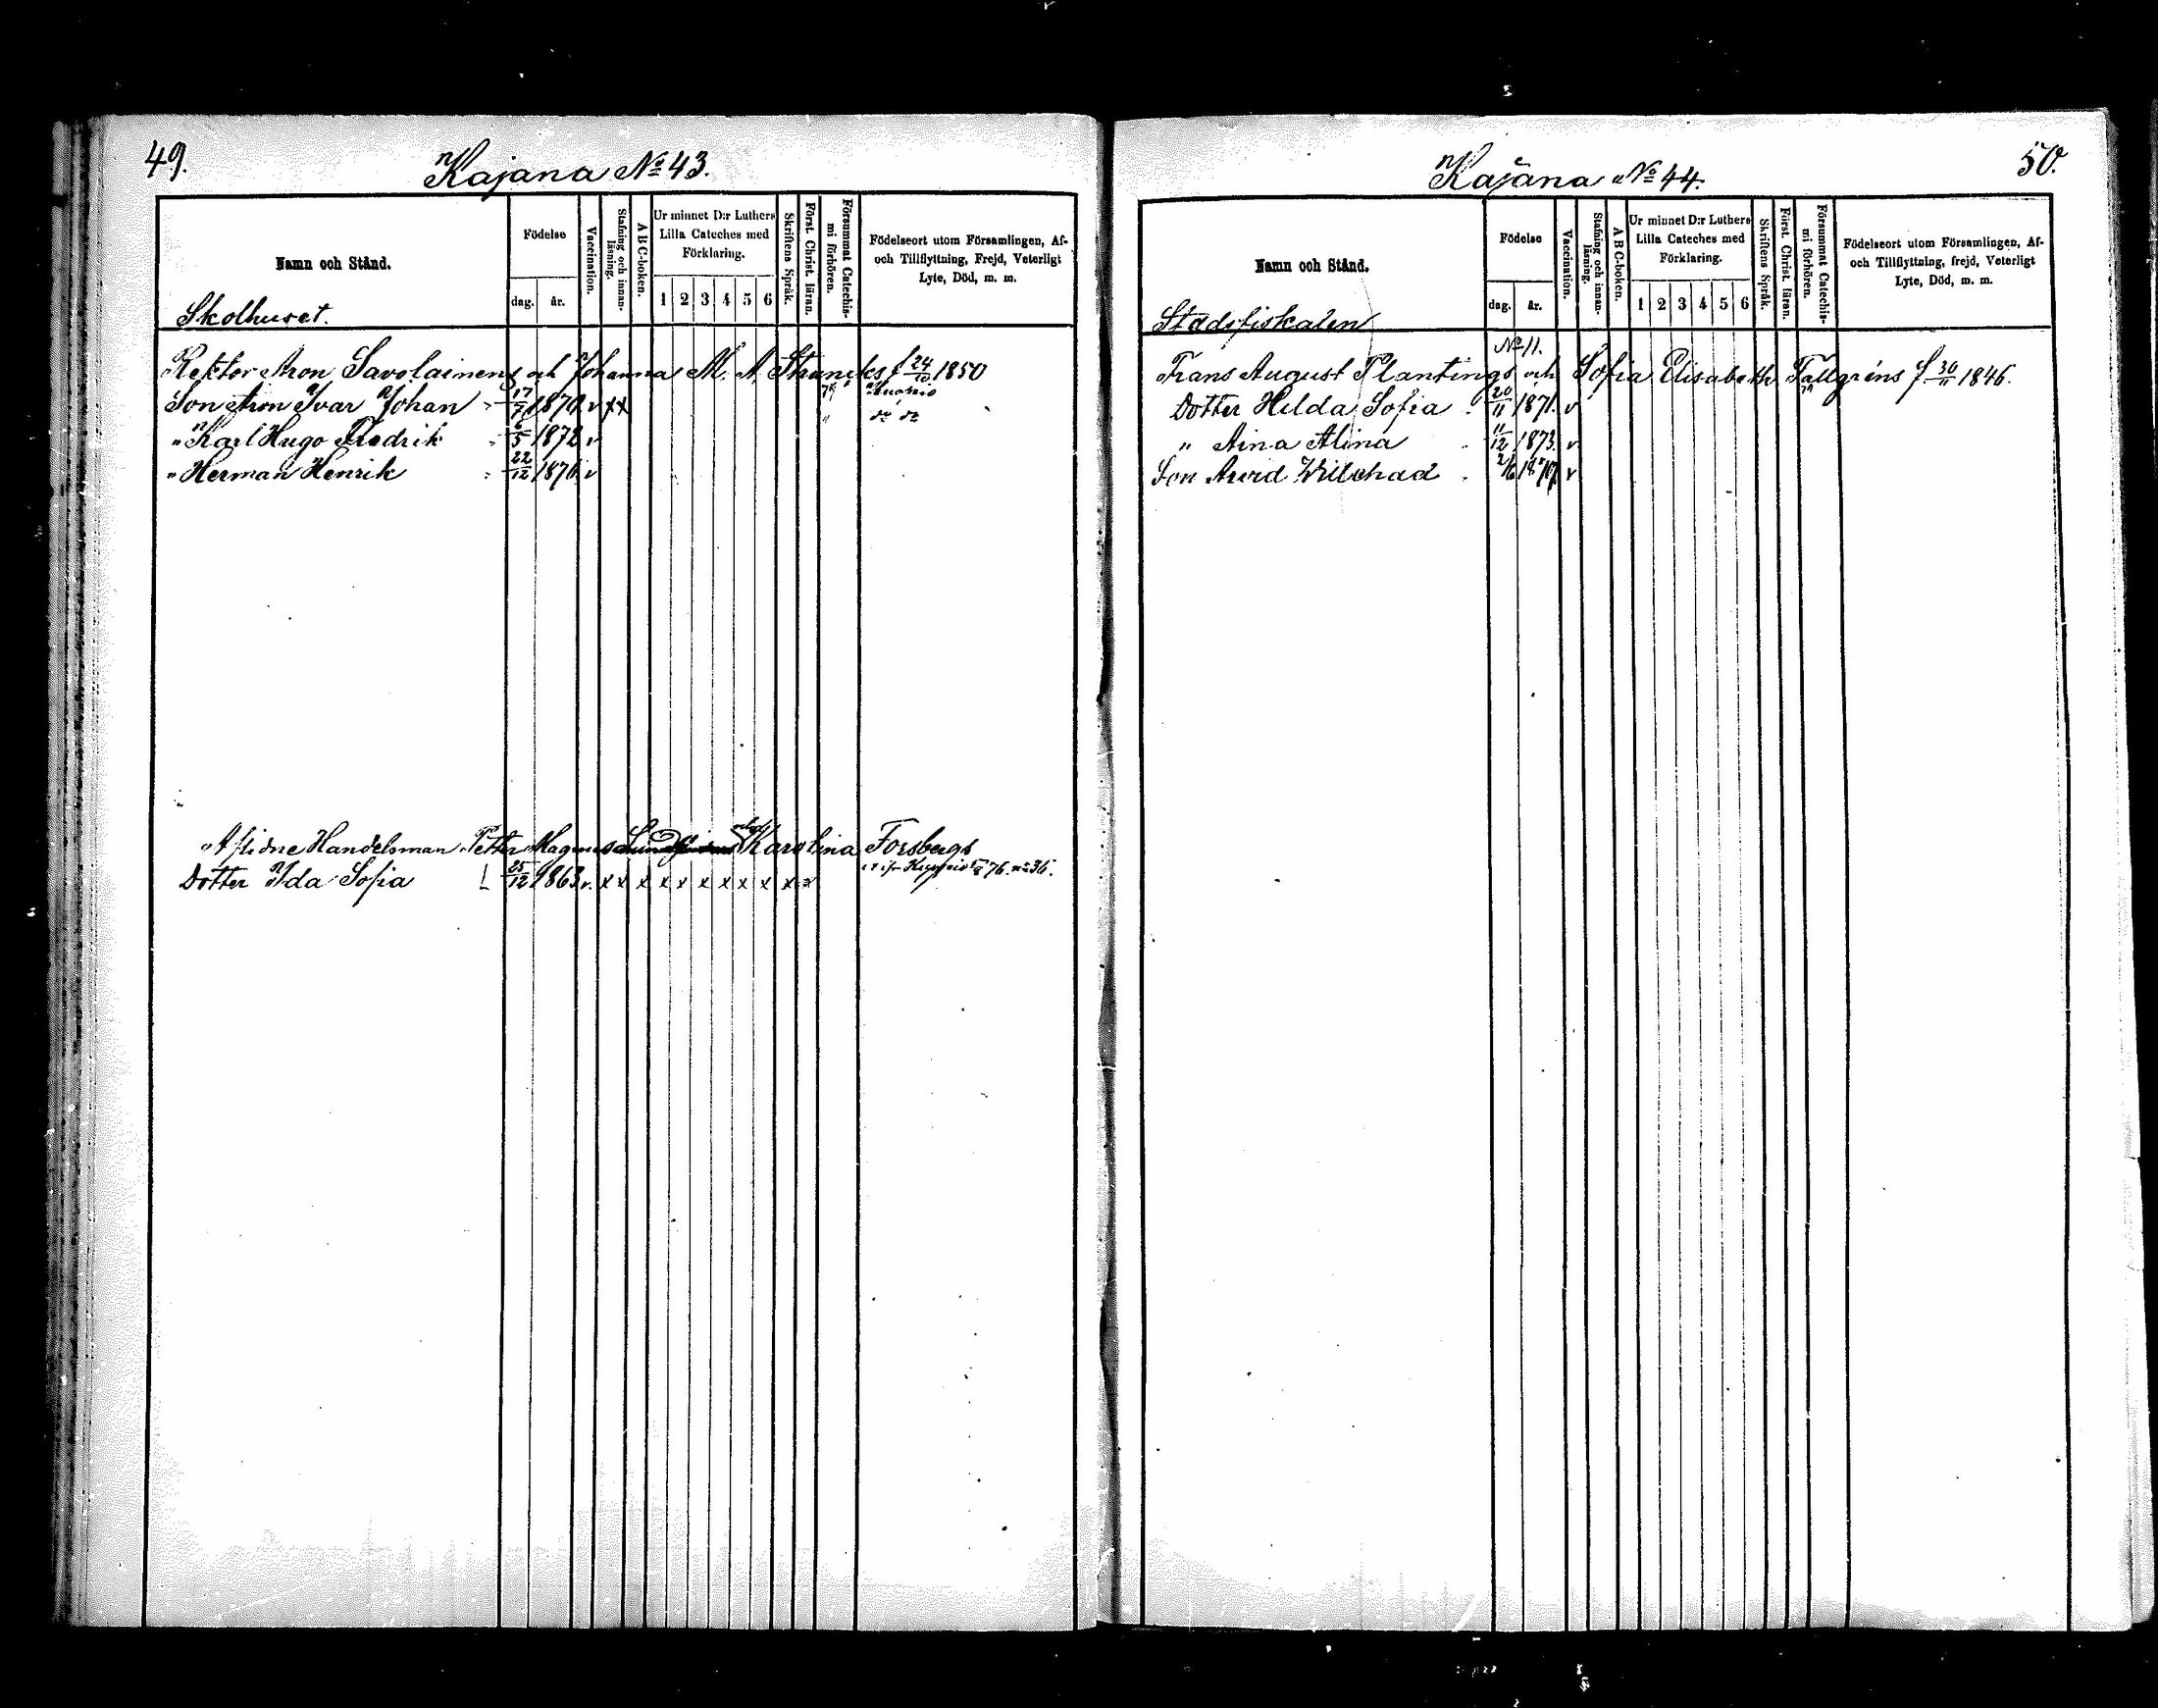 49.
Kajana No 43.
Namn och Stånd.
Födelse
dag.
år.
Vaccination.
Stafning och innan-
läsning.
A B C-boken.
Ur minnet D:r Luthers
Lilla Cateches med
Förklaring.
1 2 3 4 5 6
Skriftens Språk.
Först. Christ. läran.
Försummat Catechis-
mi förhören.
Födelseort utom Församlingen, Af-
och Tillflyttning, Frejd, Veterligt
Lyte, Död, m. m.
Skolhuset.
Rektor Aron Savolainens och Johanna M. A. f 24/10 1850
Son Aron Ivar Johan 17/7 1870 v x x Kuopio
" Karl Hugo Fredrik 6/5 1872 v
" Herman Henrik 22/12 1876 v
Aflidne Handelsman Petter Magnus Karolina Forsbergs
Dotter Ida Sofia 25/12 1863 v. x x x x x x x x x x 76. no 36.
50.
Kajana No 44.
Namn och Stånd.
Födelse
dag.
år.
Vaccination.
Stafning och innan-
läsning.
A B C-boken.
Ur minnet D:r Luthers
Lilla Cateches med
Förklaring.
1 2 3 4 5 6
Skriftens Språk.
Först. Christ. läran.
Försummat Catechis-
mi förhören.
Födelseort utom Församlingen, Af-
och Tillflyttning, frejd, Veterligt
Lyte, Död, m. m.
Stadsfiskalen
No 11.
Frans August Plantings och Sofia Elisabeth Tallgréns f 30/11 1846.
Dotter Hilda Sofia 20/11 1871. v
" Aina Alina 11/12 1873. v
Son Arvid Willehad v